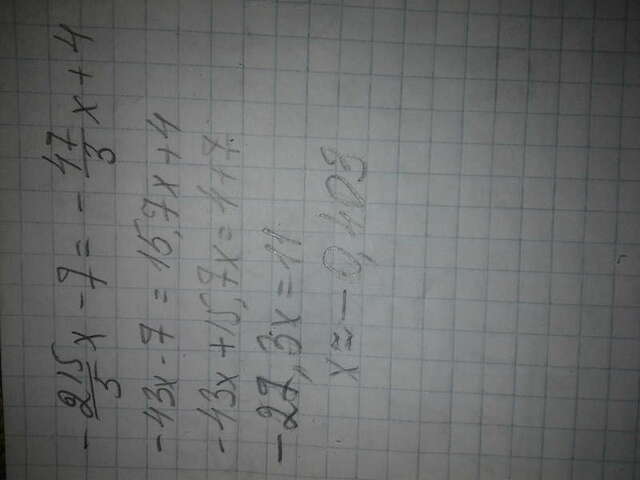 -215/5 x - 7 = - 47/3 x + 4
-43x - 7 = 15,7x + 4
-43x + 15,7x = 4 + 7
-27,3x = 11
x ≈ -0,403